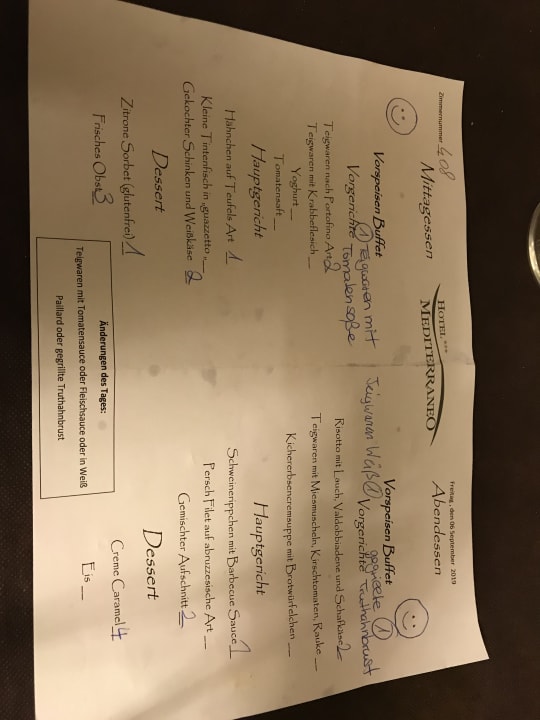 Zimmernummer 408
HOTEL ***
MEDITERRANEO
Freitag, den 06 September 2019
Mittagessen
Vorspeisen Buffet
Vorgerichte
① Teigwaren mit
Tomatensoße
Teigwaren nach Portofino Art 2
Teigwaren mit Krabbefleisch __
Yoghurt __
Tomatensaft __
Hauptgericht
Hähnchen auf Teufels Art 1
Kleine Tintenfisch in „guazzetto“ __
Gekochter Schinken und Weißkäse 2
Dessert
Zitrone Sorbet (glutenfrei) 1
Frisches Obst 3
Abendessen
Vorspeisen Buffet
Vorgerichte
Teigwaren Weiß ①
①
Truthahnbrust
Risotto mit Lauch, Valdobbiadene und Schafkäse 2
Teigwaren mit Miesmuscheln, Kirschtomaten, Rauke __
Kichererbsencremsuppe mit Brotwürfelchen __
Hauptgericht
Schweinerippchen mit Barbecue Sauce 1
Persch Filet auf abruzzesische Art __
Gemischter Aufschnitt 2
Dessert
Creme Caramel 4
Eis __
Änderungen des Tages:
Teigwaren mit Tomatensauce oder Fleischsauce oder in Weiß
Paillard oder gegrillte Truthahnbrust